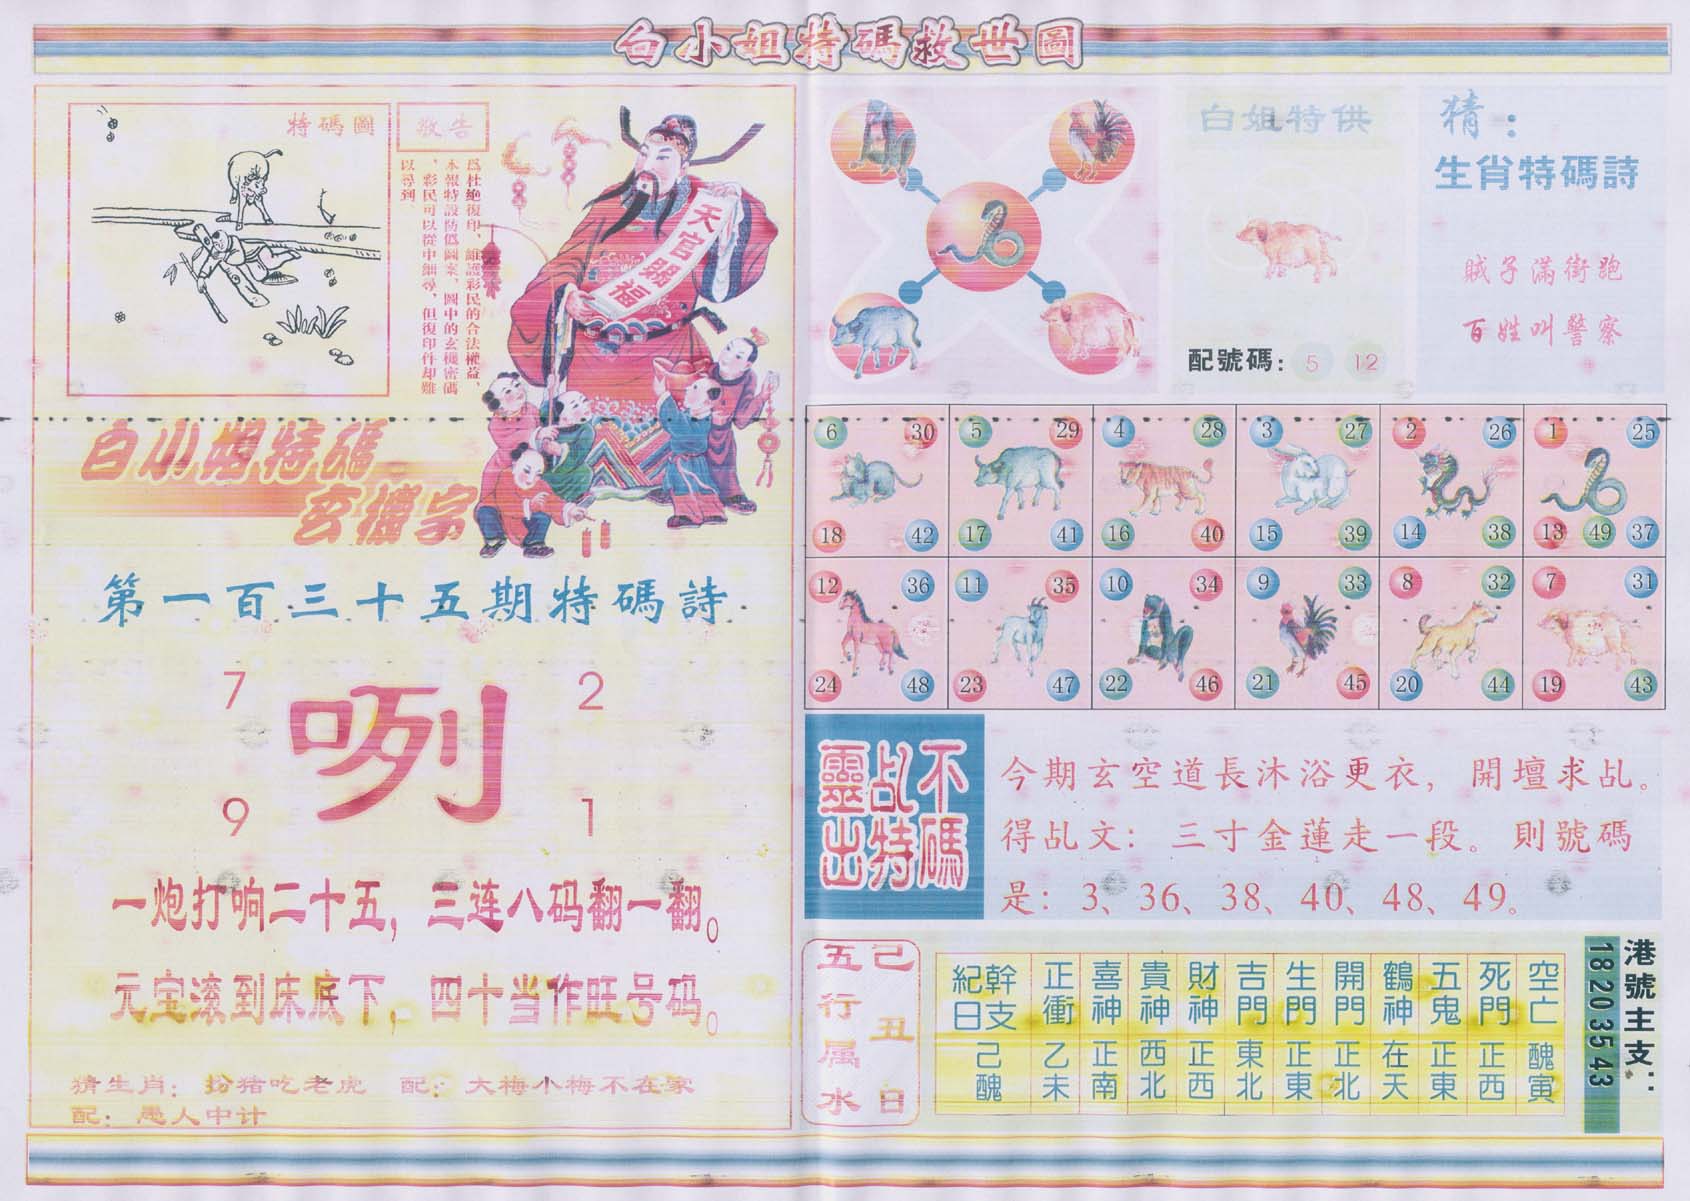 白小姐特碼救世圖
特碼圖
敬告
爲杜絶復印、維護彩民的合法權益，
本報特設防僞圖案，圖中的玄機密碼
，彩民可以從中細尋，但復印件却難
以尋到。
天官賜福
白小姐特碼
玄機字
第一百三十五期特碼詩
7 2
咧
9 1
一炮打响二十五，三连八码翻一翻。
元宝滚到床底下，四十当作旺号码。
猜生肖：扮猪吃老虎 配：大梅小梅不在家
配：愚人中计
白姐特供
配號碼：5 12
猜：
生肖特碼詩
賊子滿街跑
百姓叫警察
6 30 5 29 4 28 3 27 2 26 1 25
18 42 17 41 16 40 15 39 14 38 13 49 37
12 36 11 35 10 34 9 33 8 32 7 31
24 48 23 47 22 46 21 45 20 44 19 43
不碼
乩特
靈出
今期玄空道長沐浴更衣，開壇求乩。
得乩文：三寸金蓮走一段。則號碼
是：3、36、38、40、48、49。
己丑日
五行属水
紀日幹支 正衝 喜神 貴神 財神 吉門 生門 開門 鶴神 五鬼 死門 空亡
己醜 乙未 正南 西北 正西 東北 正東 正北 在天 正東 正西 醜寅
港號主支：
18 20 35 43